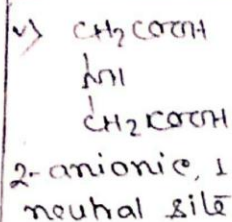 v) CH2COOH
NH
CH2COOH
2-anionic, 1
neutral site